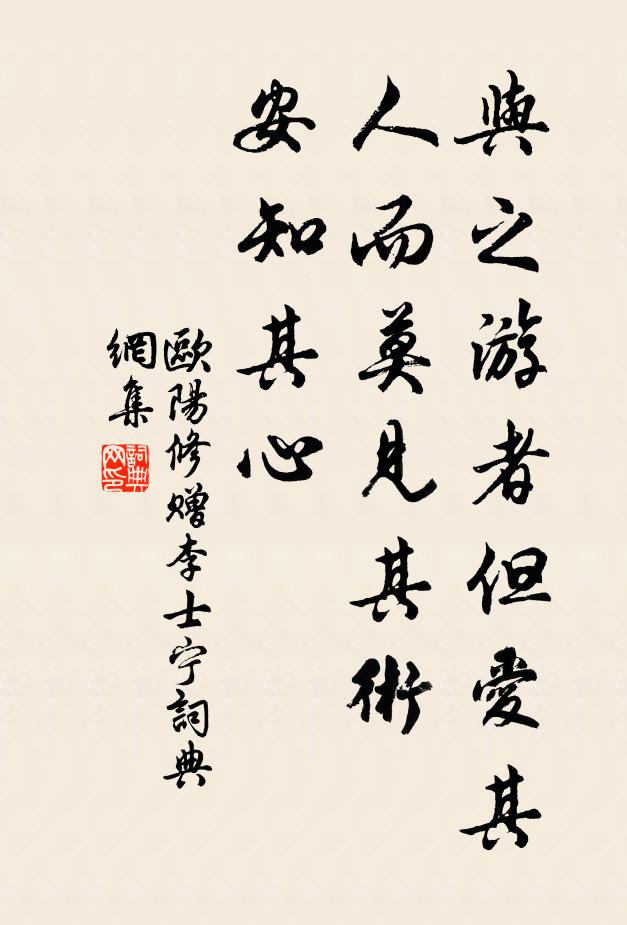 與之游者但愛其
人而莫見其術
安知其心
歐陽修赠李士宁詞典
網集
詞典网印